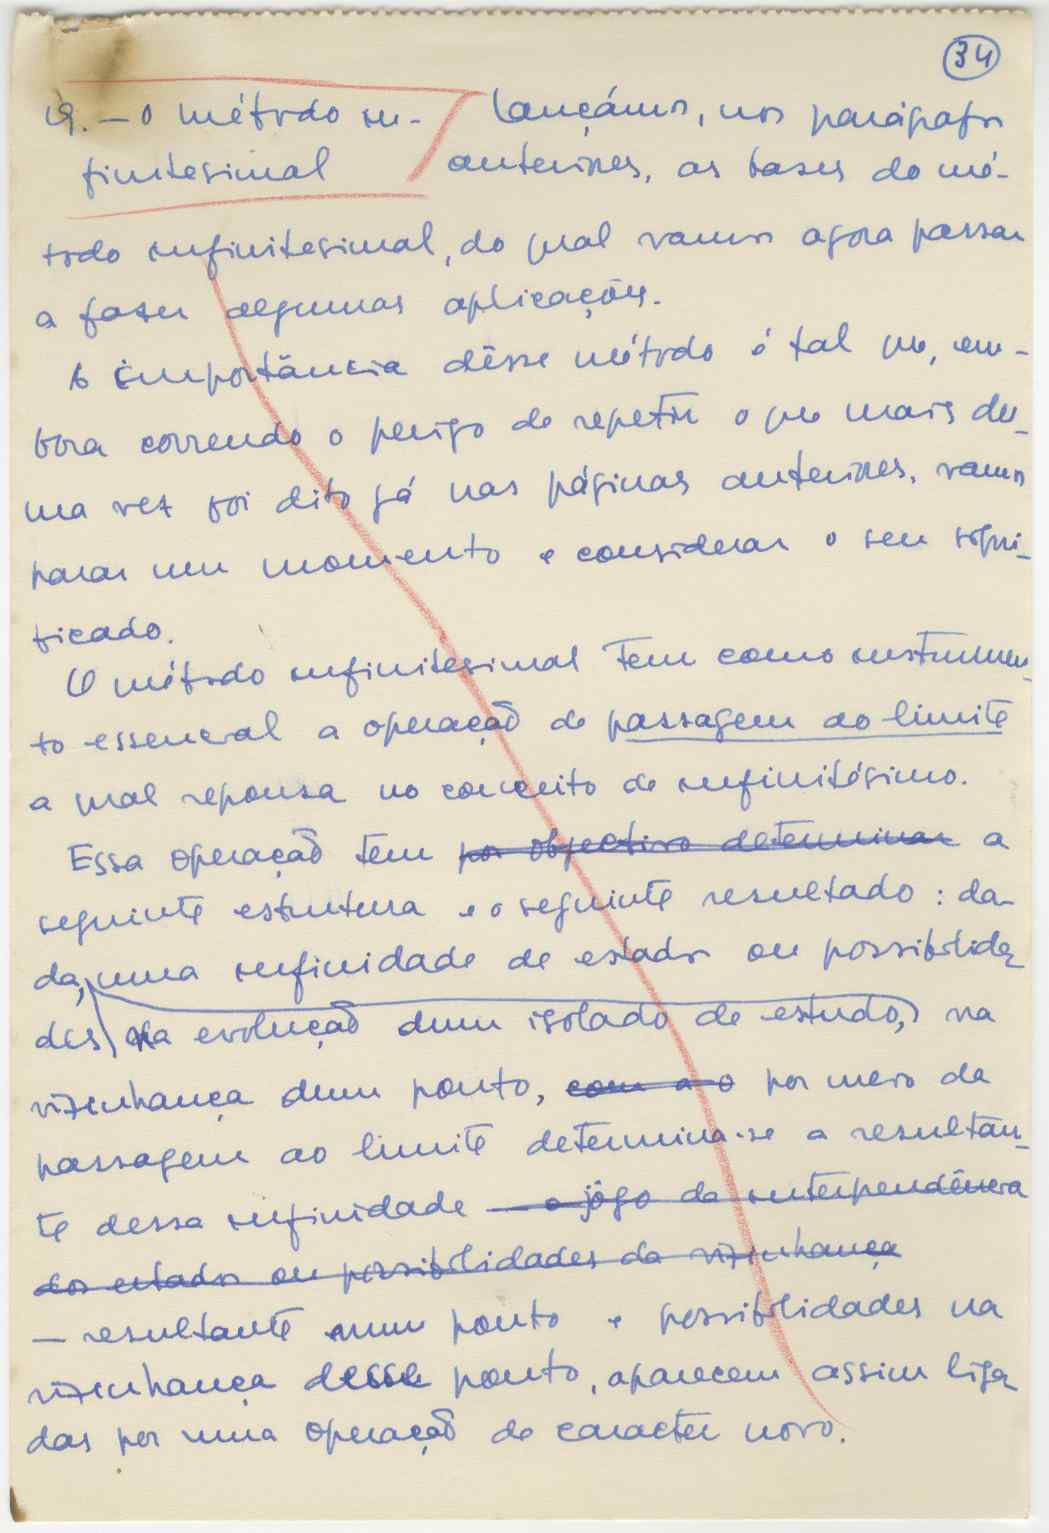 34
19. — O método in-
finitesimal
Lançámos, nos parágrafos
anteriores, as bases do mé-
todo infinitesimal, do qual vamos agora passar
a fazer algumas aplicações.
A importância dêsse método é tal que, em-
bora correndo o perigo de repetir o que mais du-
ma vez foi dito já nas páginas anteriores, vamos
parar um momento e considerar o seu signi-
ficado.
O método infinitesimal tem como instrumen-
to essencial a operação de passagem ao limite
a qual repousa no conceito de infinitésimo.
Essa operação tem por objectivo determinar a
seguinte estrutura e o seguinte resultado: da-
da, uma infinidade de estados ou possibilida-
des na evolução dum isolado de estudo, na
vizinhança dum ponto, com a o por meio da
passagem ao limite determina-se a resultan-
te dessa infinidade — o jôgo da interpendência
dos estados ou possibilidades da vizinhança
— resultante num ponto e possibilidades na
vizinhança desse ponto, aparecem assim liga-
das por uma operação de caracter novo.